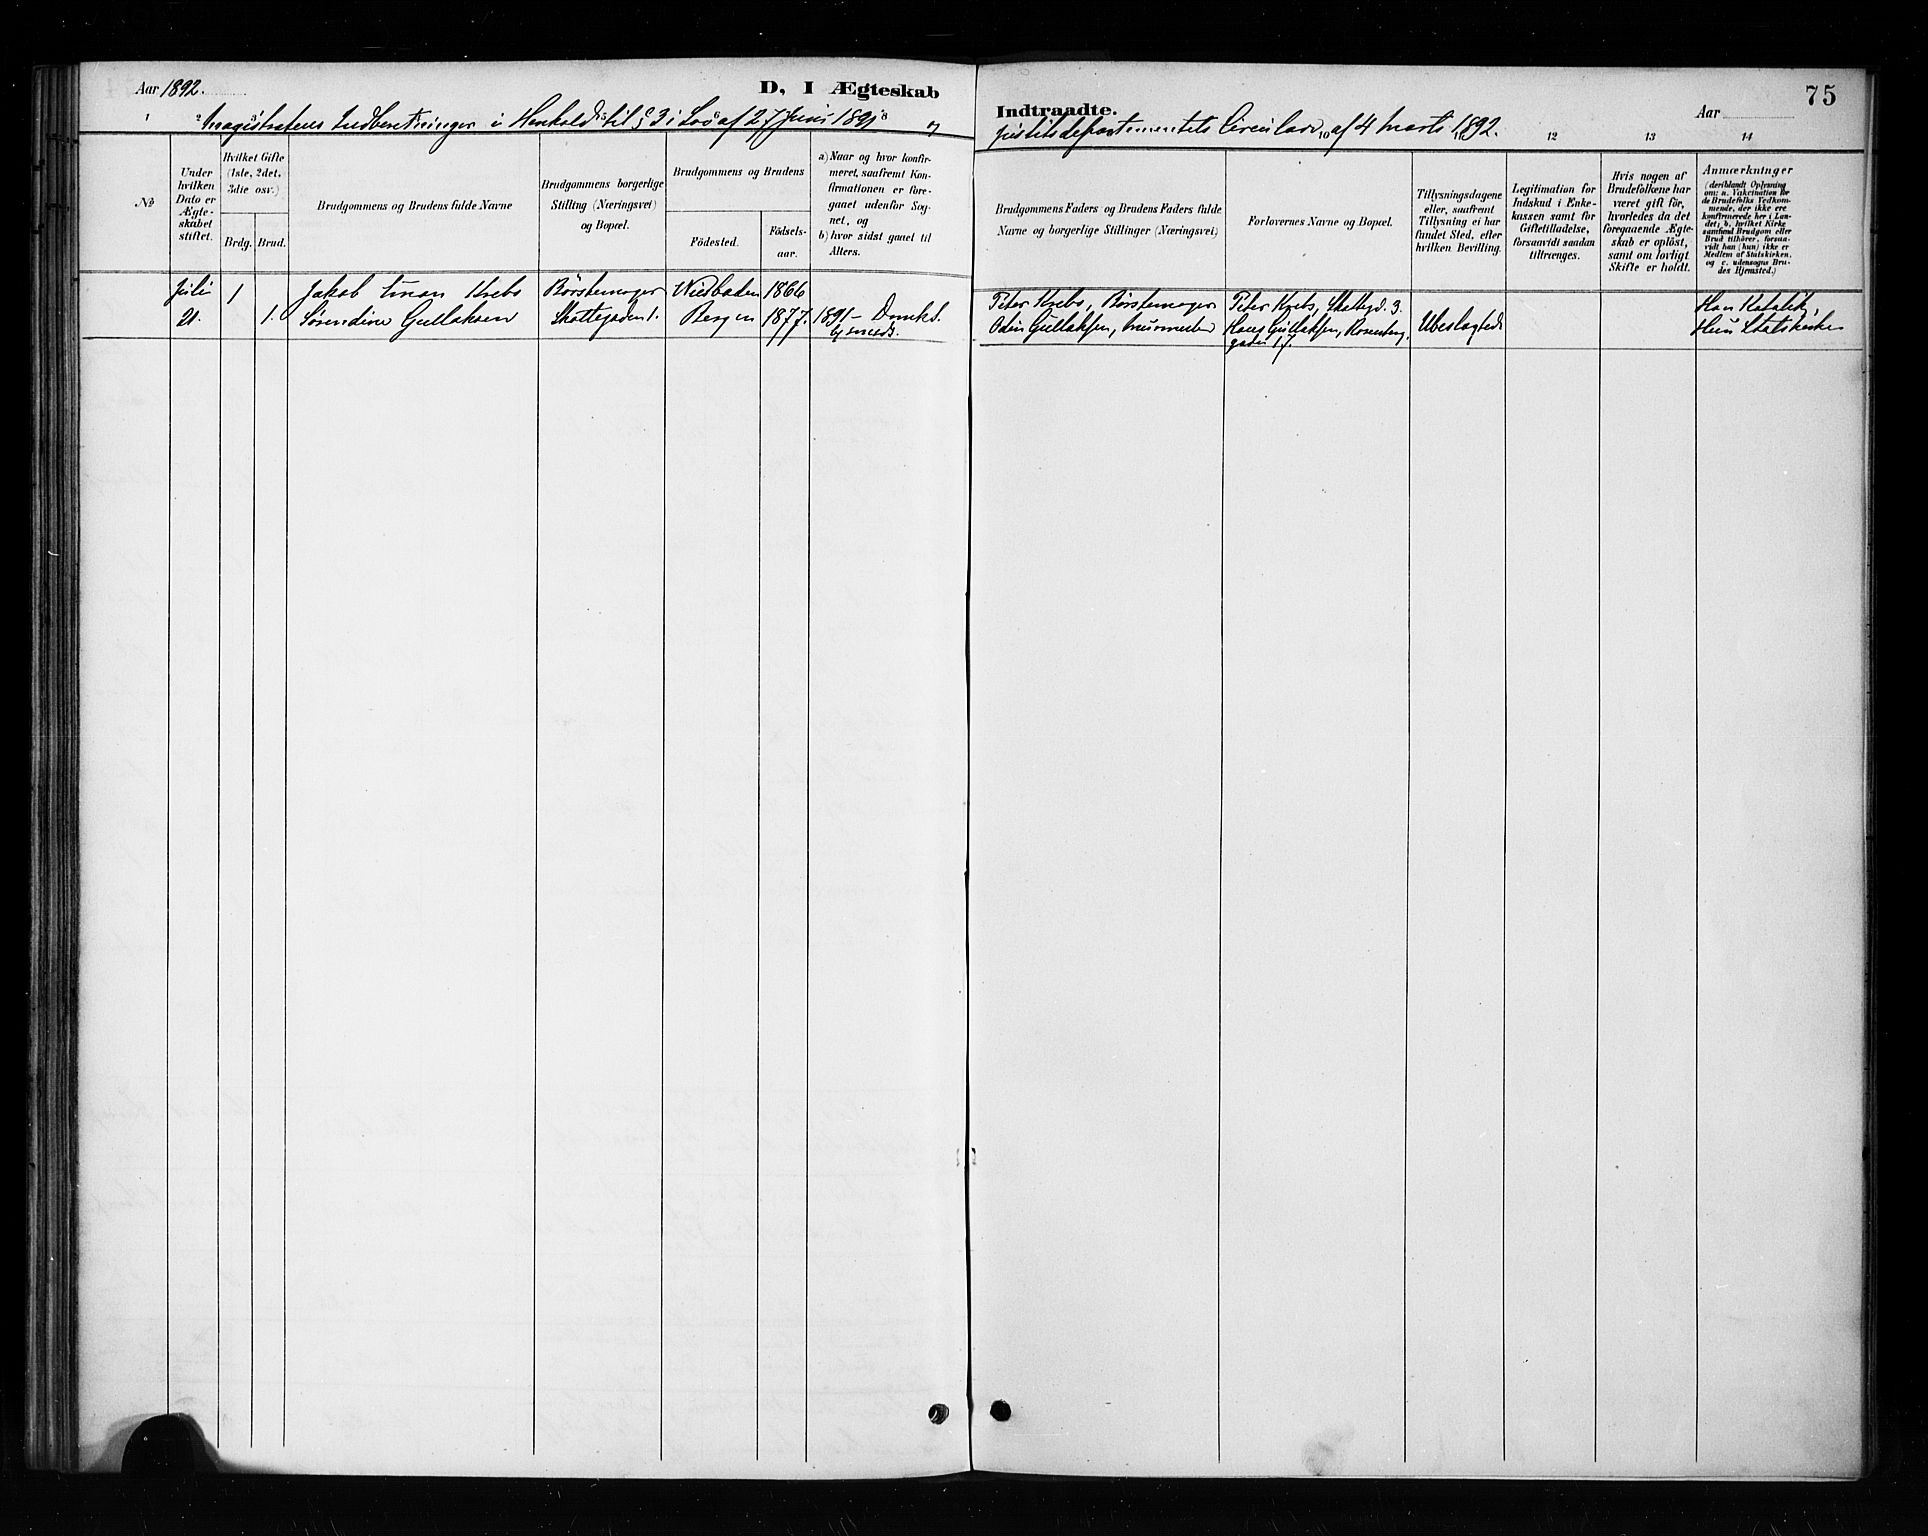 Aar 1892.
D, I Ægteskab
Indtraadte.
Aar
75
Magistratens Indberetninger i Henhold til § 3 i Lov af 27 Juni 1891 og
Justitsdepartementets Circulære af 4 Marts 1892.
1 2 3 5 8 10 11 12 13 14
No
Under
hvilken
Dato er
Ægte-
skabet
stiftet.
Hvilket Gifte
(1ste, 2det,
3die osv.)
Brdg. Brud.
Brudgommens og Brudens fulde Navne
Brudgommens borgerlige
Stilling (Næringsvei)
og Bopæl.
Brudgommens og Brudens
Födested.
Födsels-
aar.
a) Naar og hvor konfir-
meret, saafremt Kon-
firmationen er fore-
gaaet udenfor Sog-
net, og
b) hvor sidst gaaet til
Alters.
Brudgommens Faders og Brudens Faders fulde
Navne og borgerlige Stillinger (Næringsvei)
Forlovernes Navne og Bopæl.
Tillysningsdagene
eller, saafremt
Tillysning ei har
fundet Sted, efter
hvilken Bevilling.
Legitimation for
Indskud i Enke-
kassen samt for
Giftetilladelse,
forsaavidt saadan
tiltrænges.
Hvis nogen af
Brudefolkene har
været gift før,
hvorledes da det
foregaaende Ægte-
skab er oplöst,
samt om lovligt
Skifte er holdt.
Anmærkninger
(deriblandt Oplysning
om: a. Vakcination for
de Brudefolks Vedkom-
mende, der ikke ere
konfirmerede her i Lan-
det; b. hvilket Kirke-
samfund Brudgom eller
Brud tilhører, forsaa-
vidt han (hun) ikke er
Medlem af Statskirken,
og c. udensogns Bru-
des Hjemsted.)
Juli 1 Jakob Krebs Börstemager Wiesbaden 1866
21. 1. Sørendine Gullaksen Skottegaden 1. Bergen 1877. 1891 - Domk.
Peter Krebs, Börstemager Peter Krebs, Skottegd. 3. Han Katolik,
Odin Gullaksen, Murmester Hans Gullaksen, Rosenberg Ubeslægtede Hun Statskirken
gaden 17.